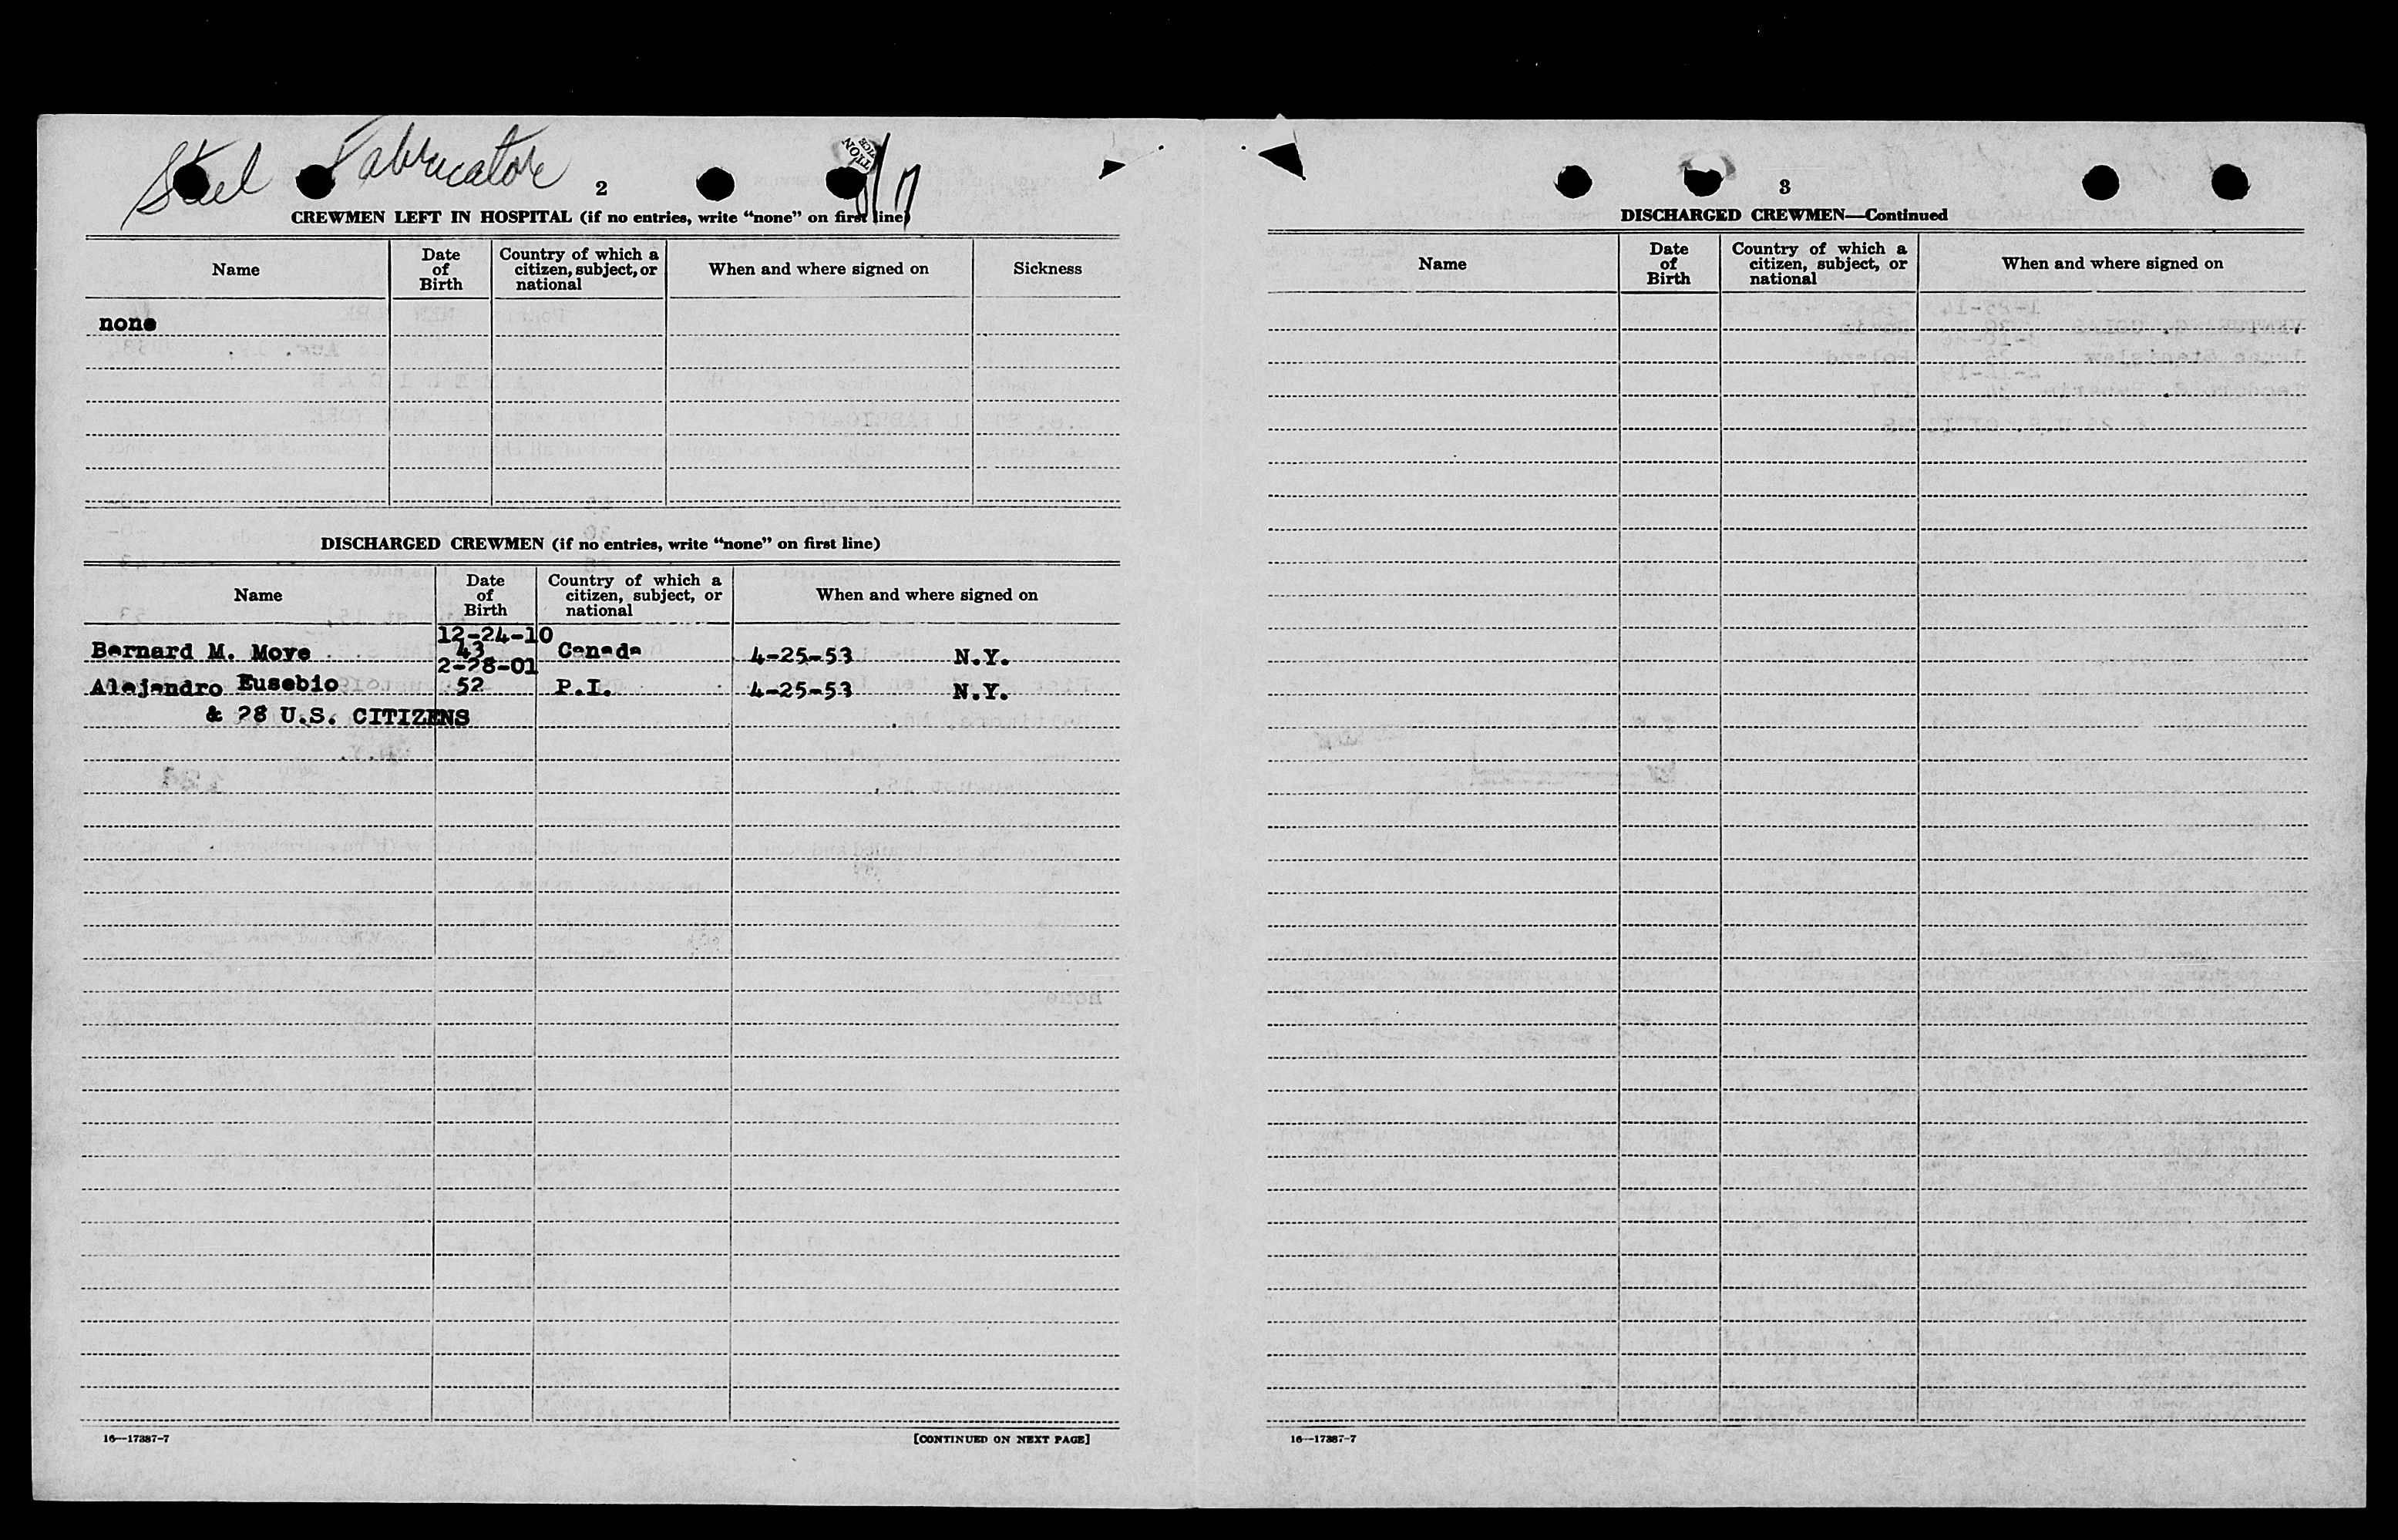 Steel Fabricator
8/17
2
CREWMEN LEFT IN HOSPITAL (if no entries, write “none” on first line)
Name
Date of Birth
Country of which a citizen, subject, or national
When and where signed on
Sickness
none
DISCHARGED CREWMEN (if no entries, write “none” on first line)
Name
Date of Birth
Country of which a citizen, subject, or national
When and where signed on
12-24-10
Bernard M. Moye 43 Canada 4-25-53 N.Y.
2-28-01
Alejandro Eusebio 52 P.I. 4-25-53 N.Y.
& 28 U.S. CITIZENS
16—17387-7
[CONTINUED ON NEXT PAGE]
3
DISCHARGED CREWMEN—Continued
Name
Date of Birth
Country of which a citizen, subject, or national
When and where signed on
16—17387-7